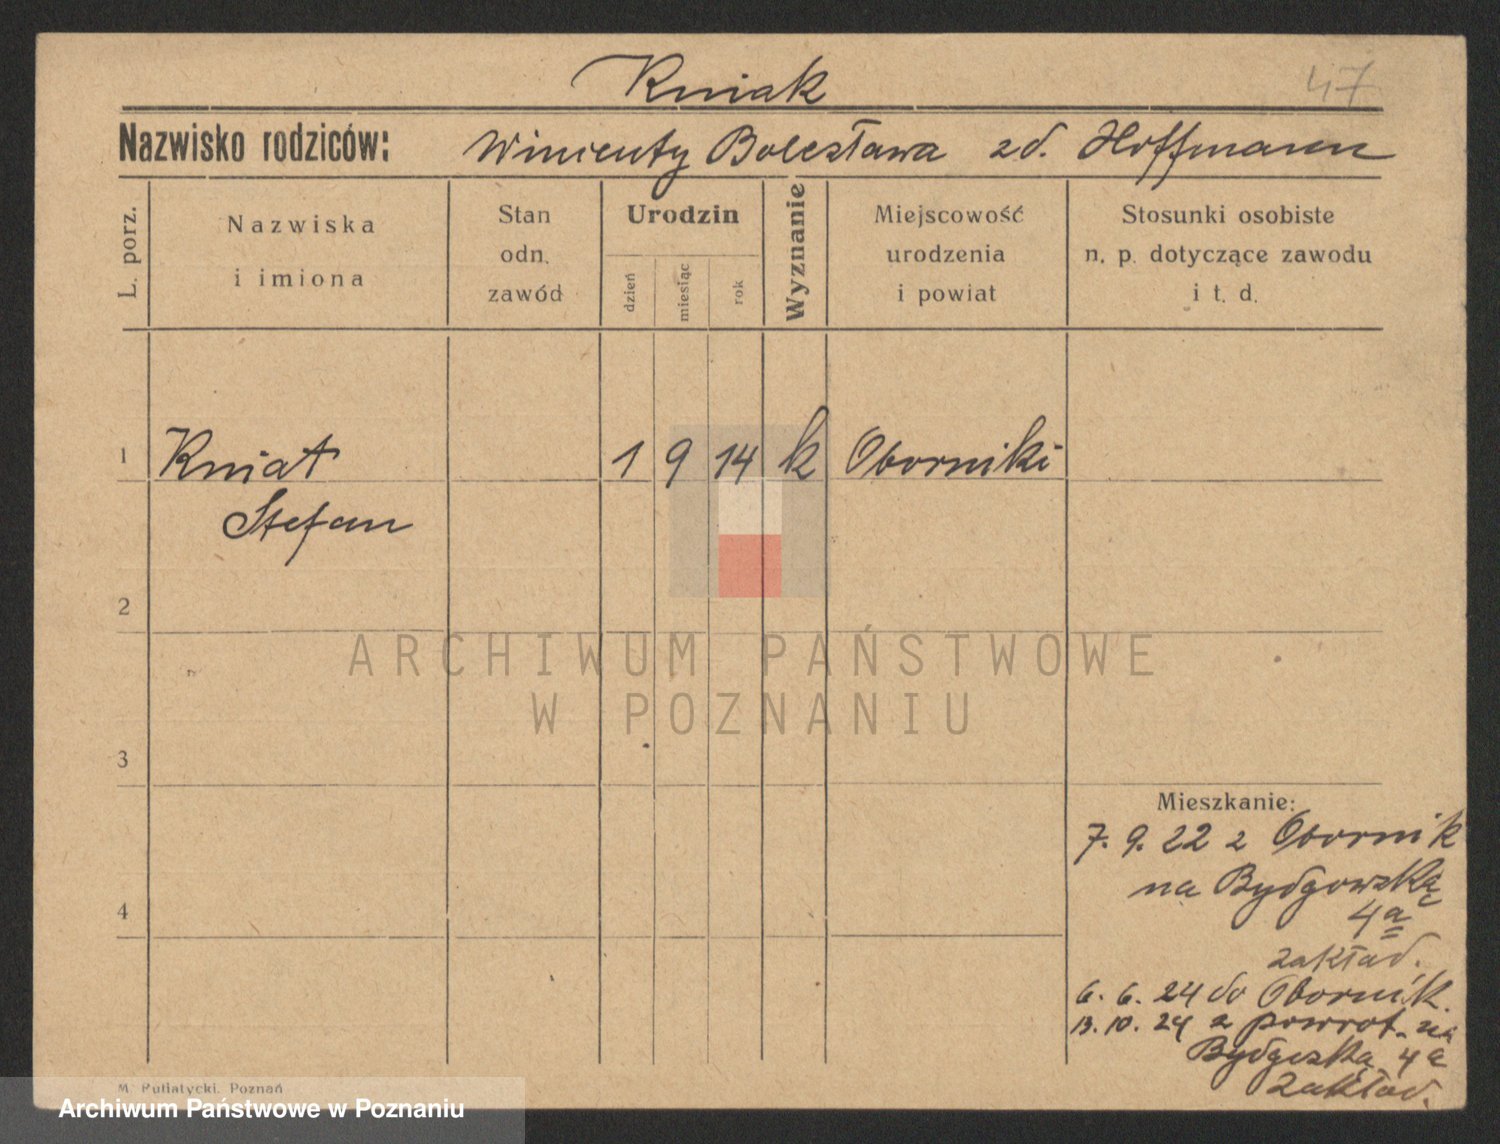 Kniak
47
Nazwisko rodziców: Wincenty Bolesława zd. Hoffmann
L. porz.
Nazwiska
i imiona
Stan
odn.
zawód
Urodzin
dzień
miesiąc
rok
Wyznanie
Miejscowość
urodzenia
i powiat
Stosunki osobiste
n. p. dotyczące zawodu
i t. d.
1 Kniat 1 9 14 k Oborniki
Stefan
2
ARCHIWUM PAŃSTWOWE
W POZNANIU
3
Mieszkanie:
7. 9. 22 z Obornik
na Bydgowską
4 4a
zakład.
6. 6. 24 do Obornik.
13. 10. 24 z powrot. na
Bydgszka 4a
Zakład.
M. Putiatycki. Poznań
Archiwum Państwowe w Poznaniu